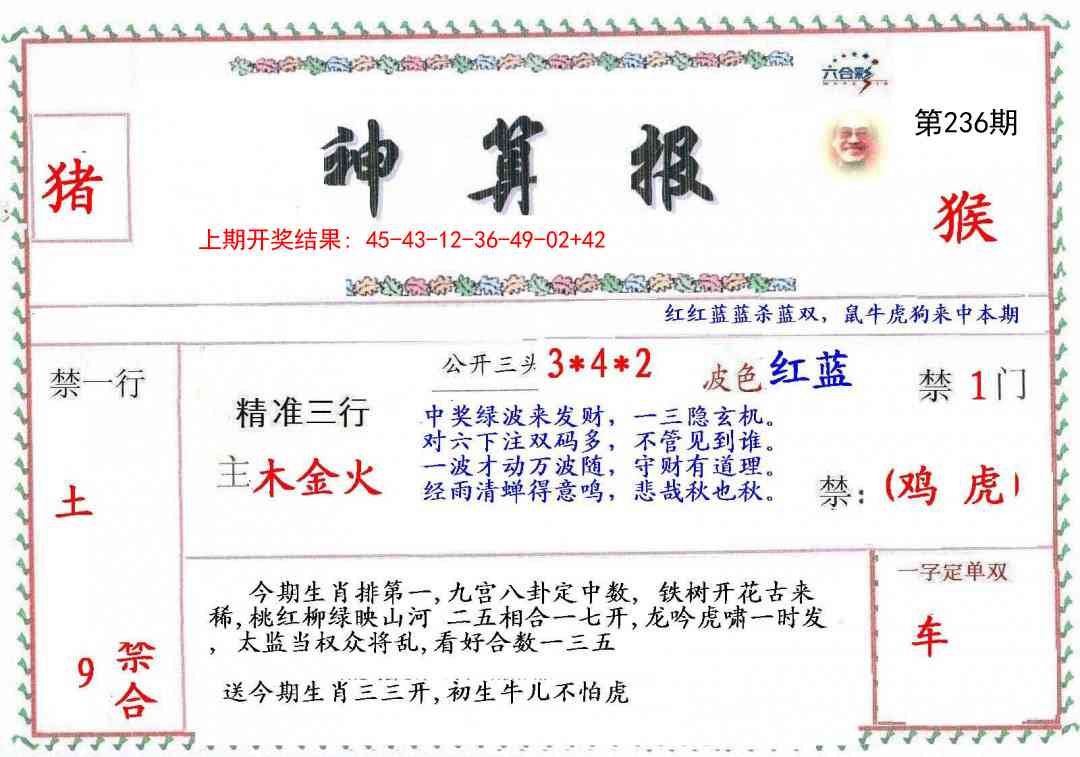 六合彩
第236期
神算报
猪
猴
上期开奖结果：45-43-12-36-49-02+42
红红蓝蓝杀蓝双，鼠牛虎狗来中本期
禁一行
土
9 禁合
精准三行
主木金火
公开三头 3*4*2
波色 红蓝
中奖绿波来发财，一三隐玄机。
对六下注双码多，不管见到谁。
一波才动万波随，守财有道理。
经雨清蝉得意鸣，悲哉秋也秋。
禁 1 门
禁：(鸡 虎)
今期生肖排第一,九宫八卦定中数, 铁树开花古来
稀,桃红柳绿映山河 二五相合一七开,龙吟虎啸一时发
, 太监当权众将乱,看好合数一三五
送今期生肖三三开,初生牛儿不怕虎
一字定单双
车